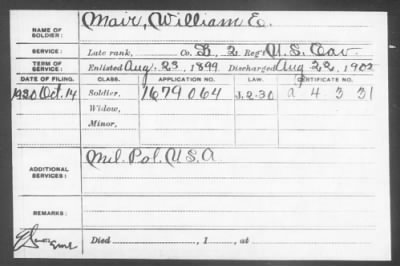 NAME OF SOLDIER: Mair, William E.
SERVICE: Late rank, Co. B. 2 Reg't U.S. Cav.
TERM OF SERVICE: Enlisted Aug. 23, 1899 Discharged Aug 22, 1902
DATE OF FILING. CLASS. APPLICATION NO. LAW. CERTIFICATE NO.
1920 Oct. 14 Soldier, 1679064 J.2.30 a 4 3 31
Widow,
Minor,
ADDITIONAL SERVICES: Mil. Pol. U.S.A
REMARKS:
Died , 1 , at